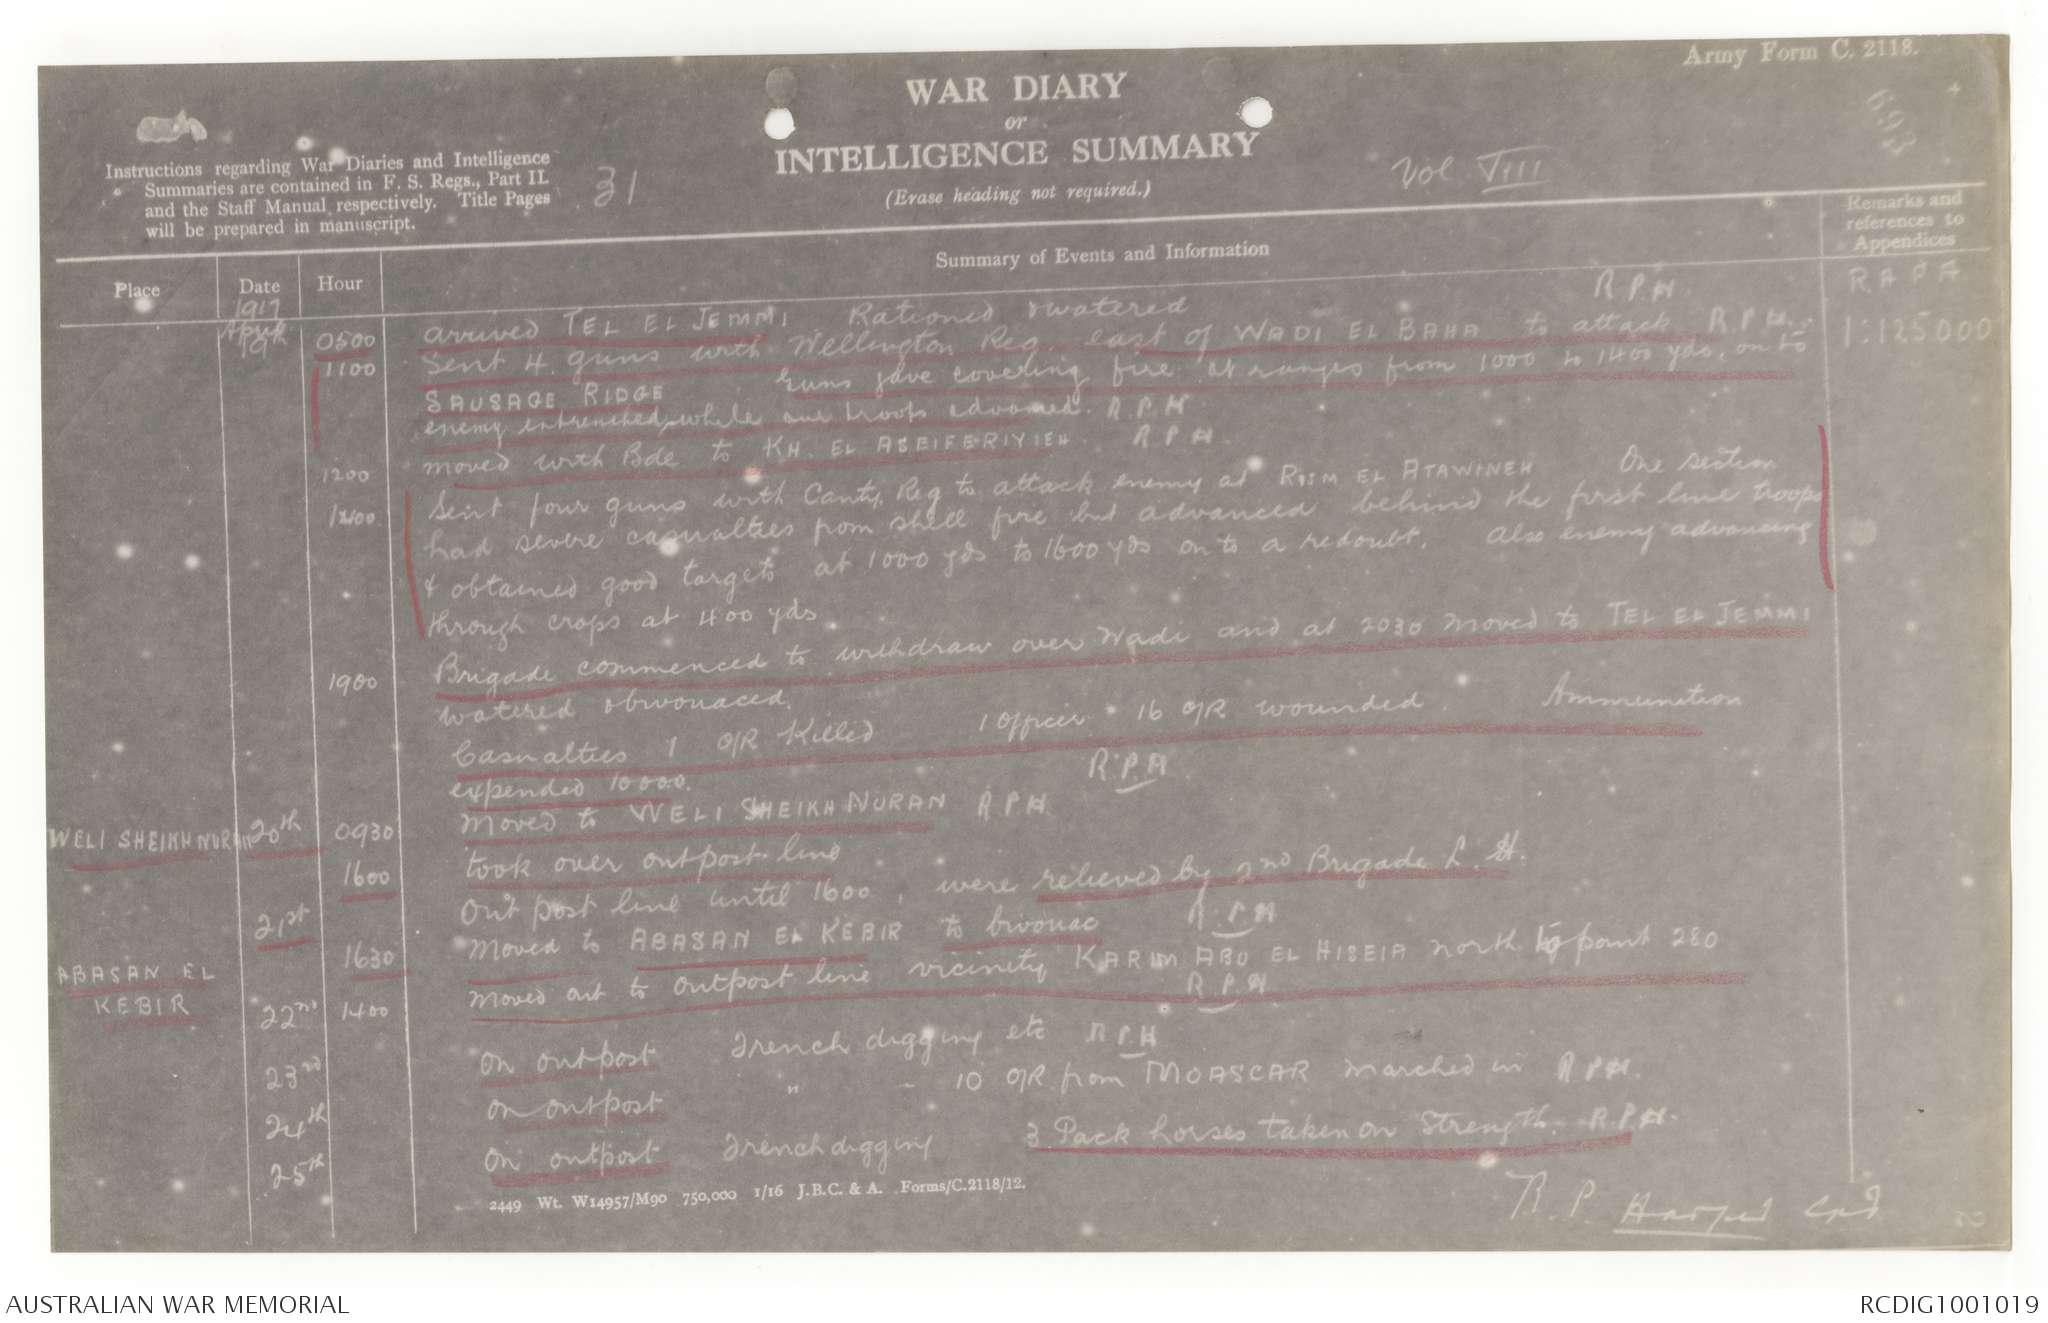 Army Form C. 2118.
WAR DIARY
or
INTELLIGENCE SUMMARY
(Erase heading not required.)
Instructions regarding War Diaries and Intelligence
Summaries are contained in F. S. Regs., Part II.
and the Staff Manual respectively. Title Pages
will be prepared in manuscript.
31
Vol VIII
693
Place Date Hour Summary of Events and Information Remarks and references to Appendices
1917
April
19 0500 arrived TEL EL JEMMI Rationed & watered R P H R A P A
1100 Sent 4 guns with Wellington Reg. east of WADI EL BAHA to attack R P H. 1:125000
SAUSAGE RIDGE Guns gave covering fire at ranges from 1000 to 1400 yds, on to
enemy entrenched while our troops advanced. R.P.H
1200 moved with Bde to KH. EL ASEIFERIYIEH. R P H.
1400 Sent four guns with Canty Reg to attack enemy at RIJM EL ATAWINEH One section
had severe casualties from shell fire but advanced behind the first line troops
& obtained good targets at 1000 yds to 1600 yds on to a redoubt. Also enemy advancing
through crops at 400 yds.
1900 Brigade commenced to withdraw over Wadi and at 2030 moved to TEL EL JEMMI
watered & bivouaced.
Casualties 1 O/R Killed 1 Officer 16 O/R wounded. Ammunition
expended 10000. R.P.H.
WELI SHEIKH NURAN 20th 0930 Moved to WELI SHEIKH NURAN R P H.
1600 took over outpost line
21st Out post line until 1600, were relieved by 2nd Brigade L. H.
1630 Moved to ABASAN EL KEBIR to bivouac R.P.H
ABASAN EL
KEBIR 22nd 1400 Moved out to outpost line vicinity KARIM ABU EL HISEIA north to point 280
R.P.H
23rd On outpost Trench digging etc R.P.H
24th On outpost " - 10 O/R from MOASCAR marched in R P H.
25th On outpost Trench digging 3 Pack horses taken on Strength. R.P.H.
2449 Wt. W14957/M90 750,000 1/16 J.B.C. & A. Forms/C.2118/12.
R. P.
AUSTRALIAN WAR MEMORIAL RCDIG1001019